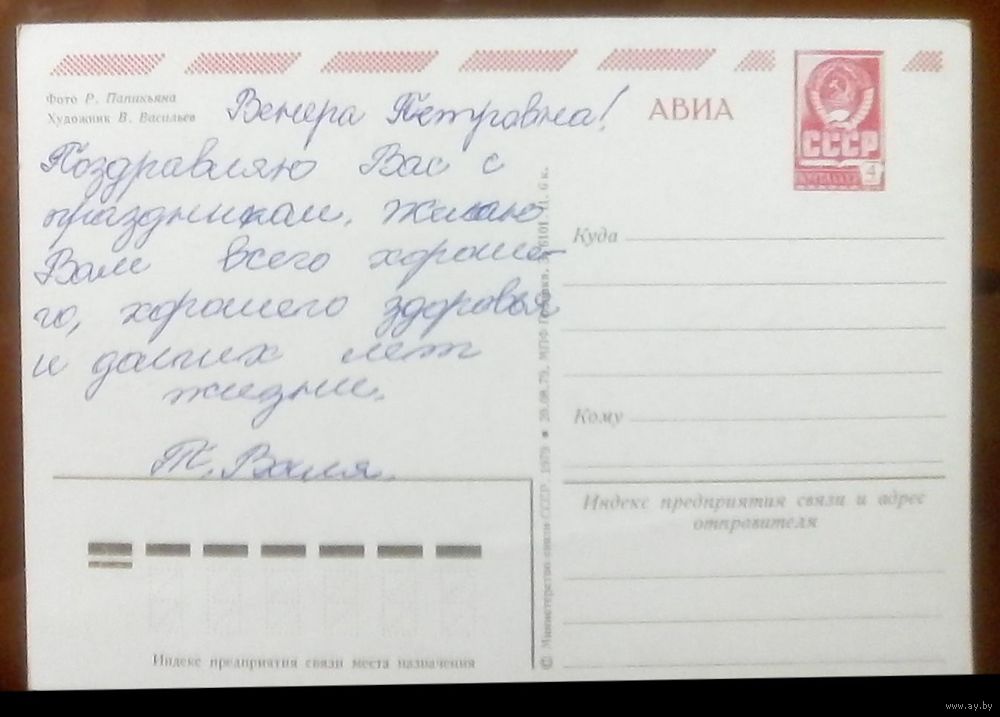 Фото Р. Папикьяна
Художник В. Васильев
Венера Петровна!
Поздравляю Вас с
праздником. Желаю
Вам всего хороше-
го, хорошего здоровья
и долгих лет
жизни.
Т. Валя.
АВИА
СССР
4
Куда
Кому
Индекс предприятия связи и адрес
отправителя
Индекс предприятия связи места назначения
© Министерство связи СССР, 1979 20.08.79. МПФ Гознака. 6 к.
www.ay.by